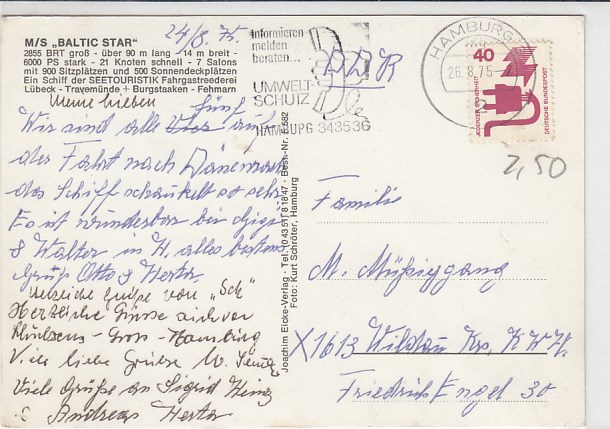 M/S „BALTIC STAR"
2855 BRT groß - über 90 m lang - 14 m breit -
6000 PS stark - 21 Knoten schnell - 7 Salons
mit 900 Sitzplätzen und 500 Sonnendeckplätzen
Ein Schiff der SEETOURISTIK Fahrgastreederei
Lübeck - Travemünde + Burgstaaken - Fehmarn
24/8. 75.
Informieren
melden
beraten...
UMWELT-
SCHUTZ
HAMBURG 343536
DDR
HAMBURG
26.8.75
40
JEDERZEIT SICHERHEIT
DEUTSCHE BUNDESPOST
2,50
Meine lieben
fünf
Wir sind alle auf
der Fahrt nach Dänemark
das Schiff schaukelt so sehr
Es ist wunderbar bei
& Walter in H. alles bestens
Gruß Otto & Herta
Grüße von „Sch"
Herzliche Grüsse auch von
Gross-Hamburg
Viele liebe Grüsse W.
Viele Grüße an Sigrid Heinz
Andreas Herta
Joachim Eicke-Verlag - Tel. 04351/81847 - Best.-Nr.
Foto: Kurt Schröter, Hamburg
Familie
M. Müßiggang
X1613 Wildau Krs. K.W.H.
Friedrich Engel 30